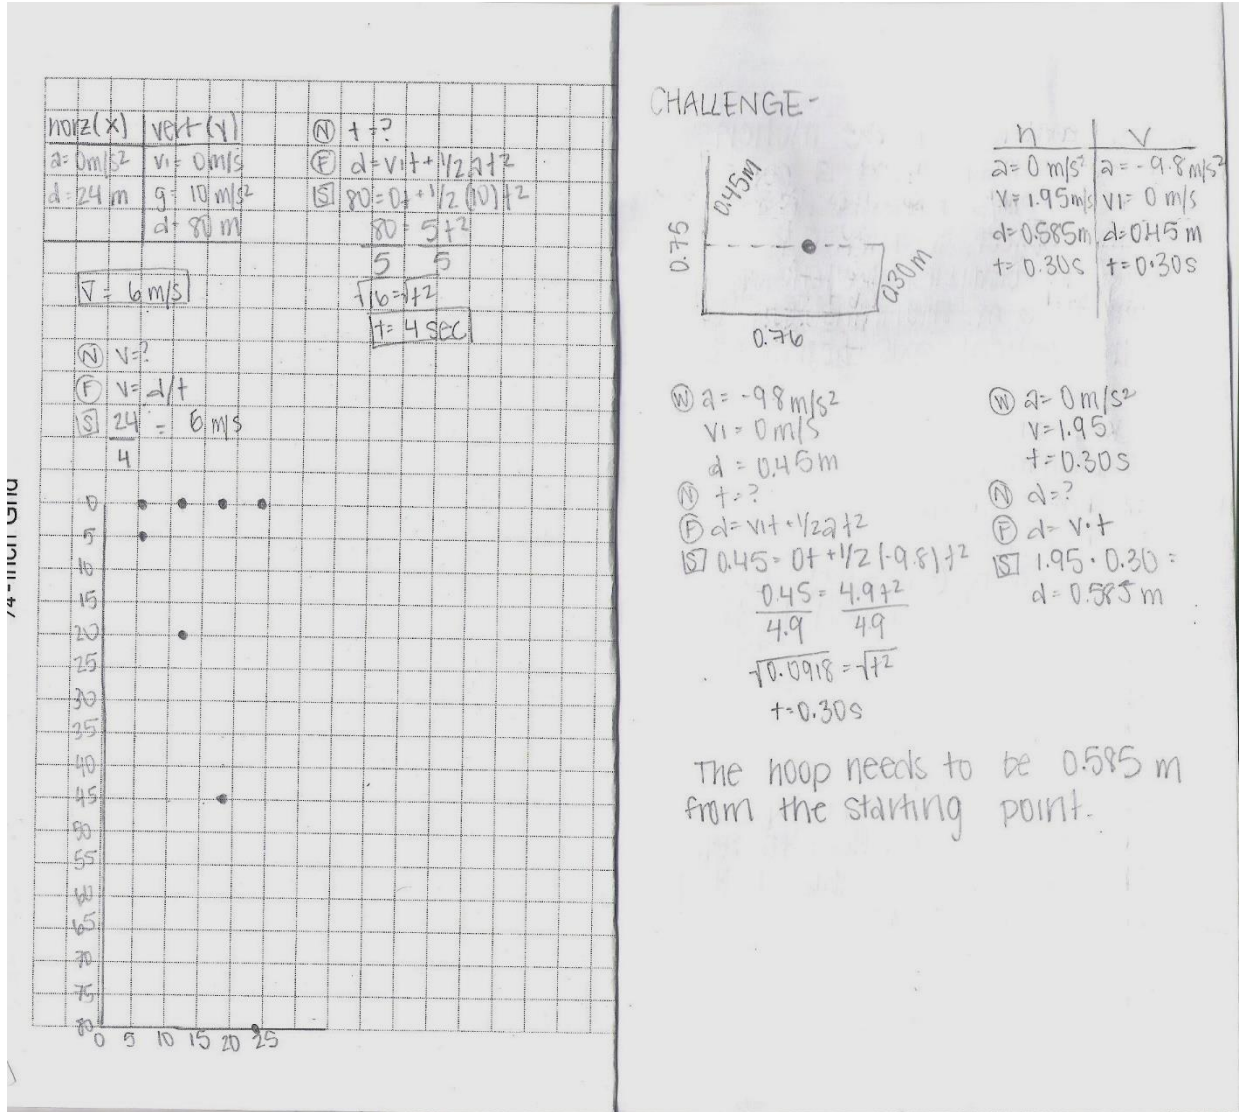 horz(x) vert(y)
a=0m/s² v1=0m/s
d=24 m g=10 m/s²
d=80 m
v̅= 6 m/s
Ⓝ t=?
Ⓕ d=v1t+1/2at²
🅂 80=0t+1/2(10)t²
80 = 5t²
5 5
√16=√t²
t=4 sec
Ⓝ v=?
Ⓕ v=d/t
🅂 24 = 6 m/s
4
0
5
10
15
20
25
30
35
40
45
50
55
60
65
70
75
80
0 5 10 15 20 25
1/4-Inch Grid
CHALLENGE-
0.45m
0.75
0.30m
0.76
h v
a=0 m/s² a=-9.8m/s²
v=1.95m/s v1=0 m/s
d=0.585m d=0.45 m
t=0.30s t=0.30s
Ⓦ a=-9.8m/s²
v1=0m/s
d=0.45m
Ⓝ t=?
Ⓕ d=v1t+1/2at²
🅂 0.45=0t+1/2(-9.8)t²
0.45 = 4.9t²
4.9 4.9
√0.0918=√t²
t=0.30s
Ⓦ a=0m/s²
v=1.95
t=0.30s
Ⓝ d=?
Ⓕ d=v·t
🅂 1.95·0.30=
d=0.585m
The hoop needs to be 0.585 m
from the starting point.